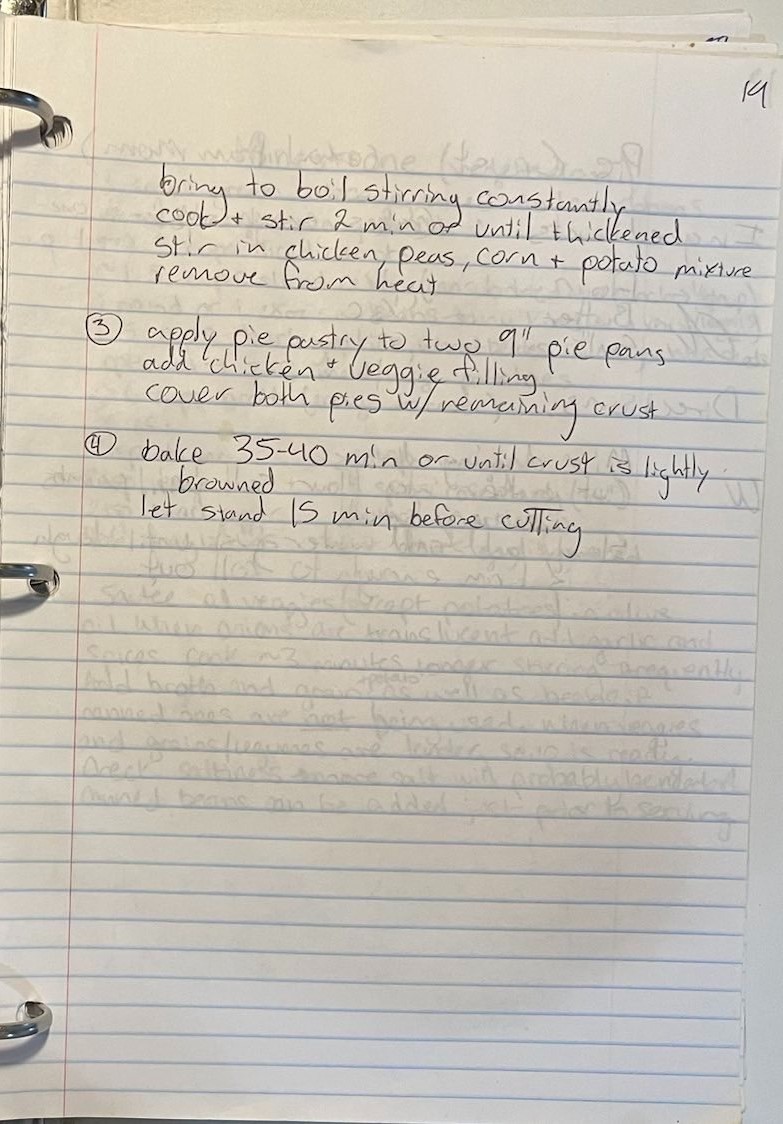 19
bring to boil stirring constantly
cook + stir 2 min or until thickened
stir in chicken, peas, corn + potato mixture
remove from heat
③ apply pie pastry to two 9" pie pans
add chicken + veggie filling
cover both pies w/ remaining crust
④ bake 35-40 min or until crust is lightly
browned
let stand 15 min before cutting